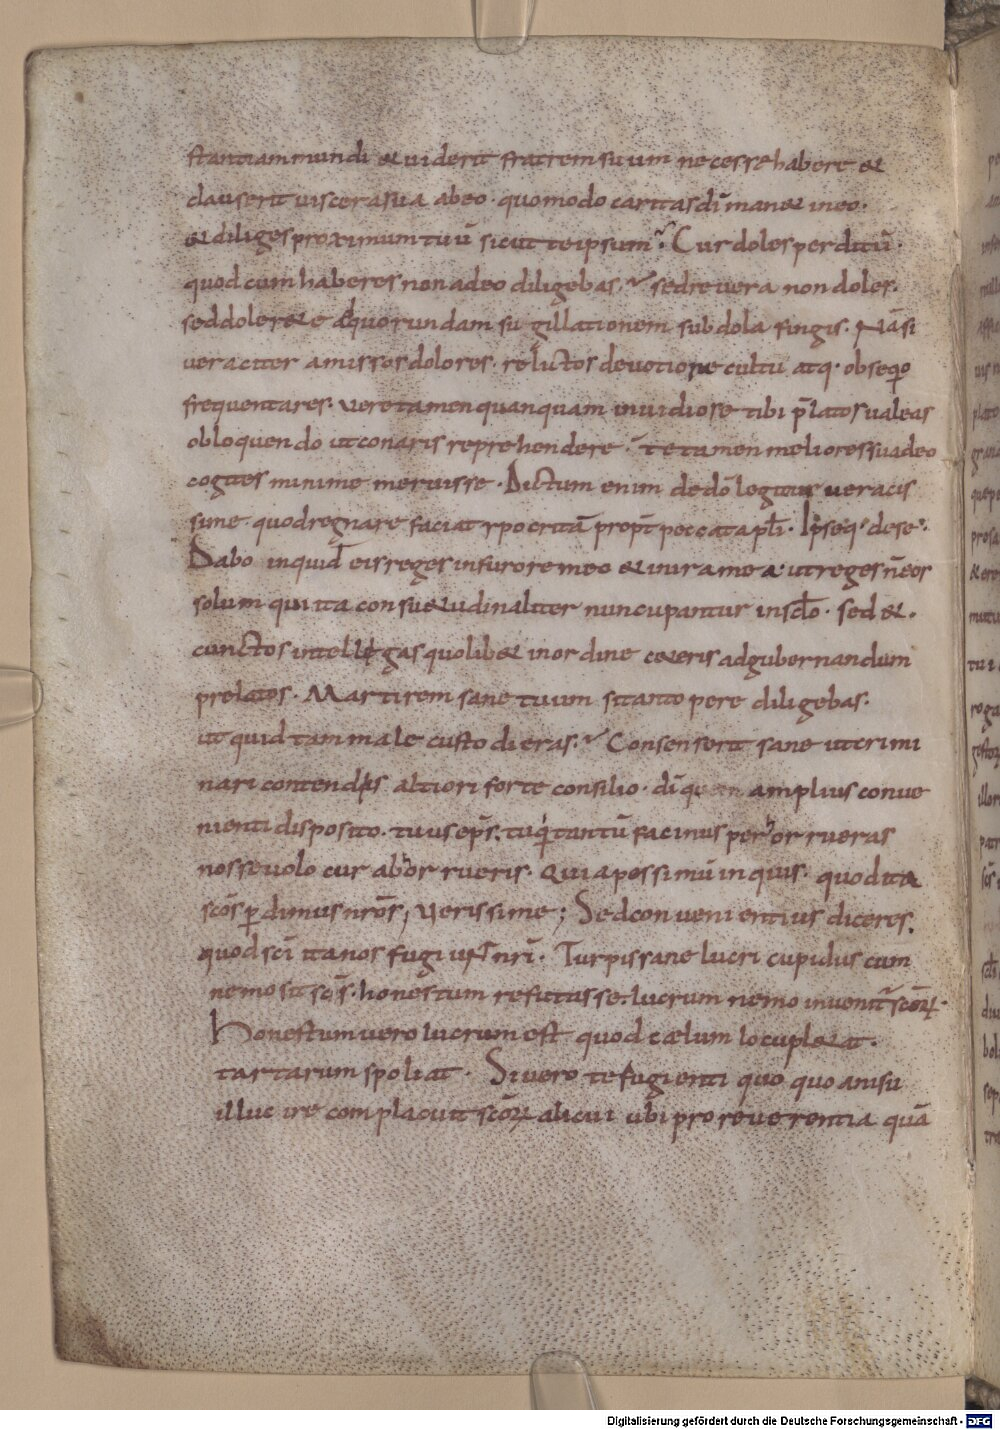 stantiam mundi & uiderit fratrem suum necesse habere &
clauserit uiscera sua ab eo · quomodo caritas dī man& in eo ·
& diliges proximum tuū sicut te ipsum · Cur doles perditū ·
quod cum haberes non adeo diligebas · sed reuera non doles ·
sed doler& e quorundam sugillationem subdola fingis · Nā si
ueraciter amissos dolores · relictos deuotione cultu atq · obseqio
frequentares · ueretamen quanquam inuidiose tibi p̄latos ualeas
obloquendo ut conaris reprehendere · te tamen meliores suadeo
cogites minime meruisse · Dictum enim de dō legitur ueracis
sime · quod regnare faciat ypocritā propt̄ peccata pl̄i · Ipseq· de se ·
Dabo inquid eis reges in furore meo & in ira mea · ut reges n̄ eos
solum qui ita consu&udinaliter nuncupantur in sclō · sed & ·
cunctos intellegas quolib& in ordine c&eris ad gubernandum
prelatos · Martirem sane tuum si tanto pere diligebas ·
ut quid tam male custodieras · Consenserit sane ut crimi
nari contendis altiori forte consilio · dī amplius conue
nienti disposito · tuus ep̄s · tu q̇ tantū facinus perhorrueras
nosse uolo cur abhorrueris · Quia possimū inquis · quod ita
scōs pdimus nrōs, Verissime; Sed conuenientius diceres ·
quod scī ita nos fugiunt nrī · Turpis sane lucri cupidus cum
nemo sit scs̄ · honestum refutasse · lucrum nemo inuenit scōꝝ ·
Honestum uero lucrum est quod cælum locupl&at ·
tartarum spoliat · Si uero te fugienti quo quo anisu
illuc ire complacuit scōꝝ alicui ubi pro reuerentia quā
Digitalisierung gefördert durch die Deutsche Forschungsgemeinschaft - DFG